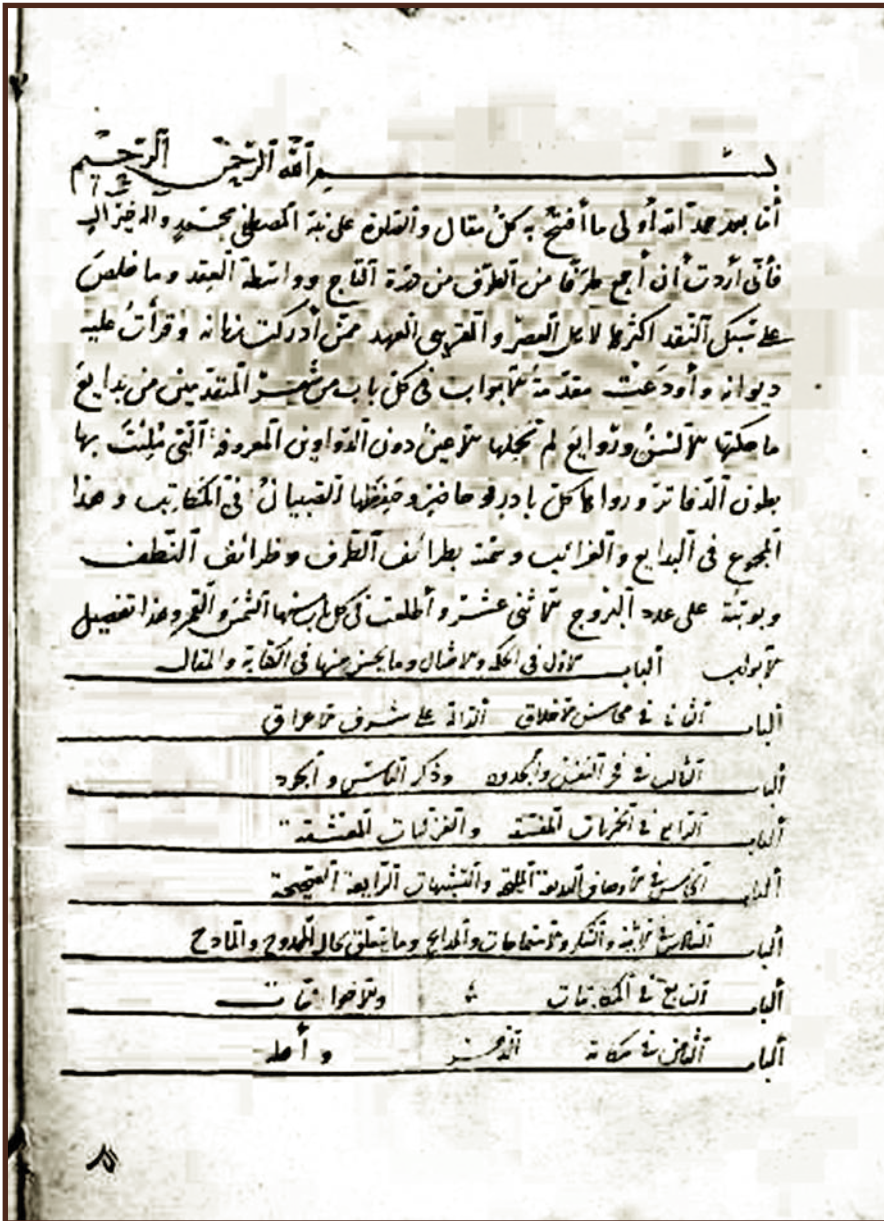 بسم الله الرحمن الرحيم
أما بعد حمد الله أولى ما أفتتح به كل مقال والصلوة على نبيه المصطفى محمد وآله خير آل
فأنى أردت أن أجمع طرفا من الطرف من درة التاج وواسطة العقد وما خلص
على سبك النقد اكثرها لأهل العصر والقريبي العهد ممن أدركت زمانه وقرأت عليه
ديوانه وأودعت مقدمة الأبواب فى كل باب من شعر المتقدمين من بدايع
ما حكتها الألسن وروايع لم تجلها الأعين دون الدواوين المعروفة التى مليت بها
بطون الدفاتر ورواها كل باد وحاضر وحفظها الصبيان فى المكاتيب وهذا
المجموع فى البدايع والغرائب وسمته بطرائف الطرف وظرائف النطف
وبوبته على عدد البروج الاثنى عشر وأطلعت فى كل باب منها الشمس والقمر وهذا تفصيل
الأبواب الباب الأول فى الحكم والأمثال وما يحسن منها فى الكفاية والمقال
الباب الثانى فى محاسن الأخلاق الدالة على شرف الأعراق
الباب الثالث فى فخر النفس والجدود وذكر البأس والجود
الباب الرابع فى الخمريات والغزليات المعشقة
الباب الخامس فى الأوصاف المليحة والتشبيهات الرايعة الصحيحة
الباب السادس فى والشكر والاستماحات والمدايح وما يتعلق بحال الممدوح والمادح
الباب السابع فى المكاتبات والأخوانيات
الباب الثامن فى الدهر وأهله